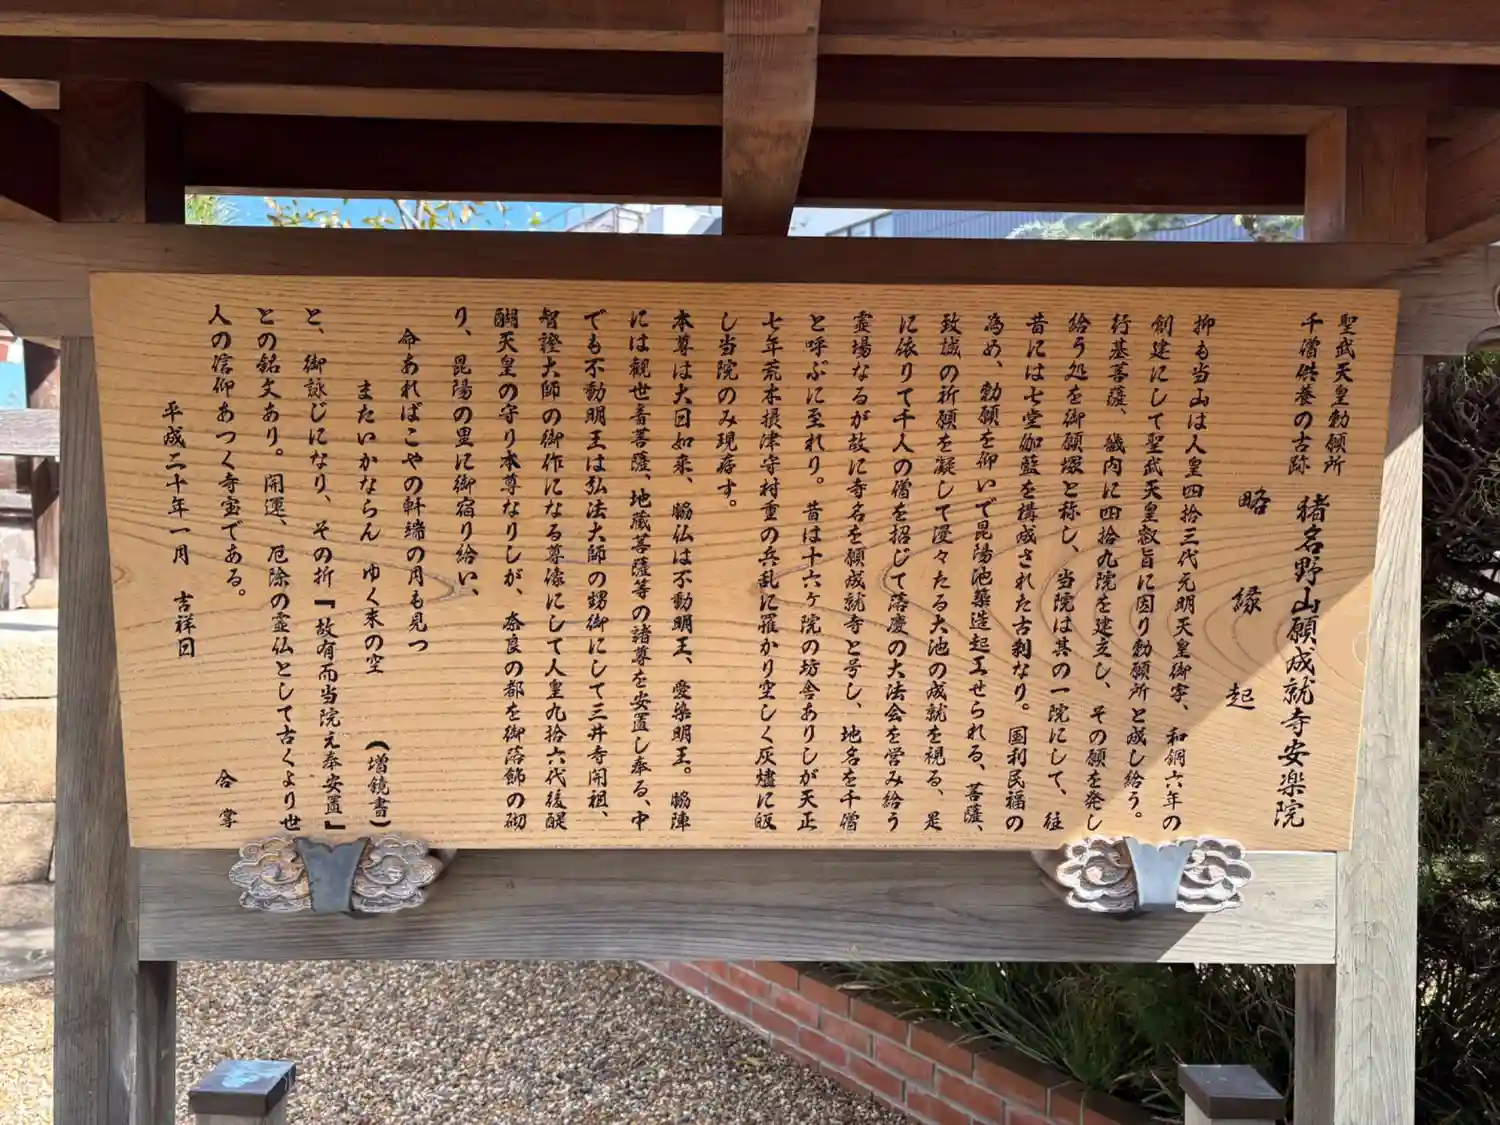 聖武天皇勅願所
千僧供養の古跡
猪名野山願成就寺安楽院
略縁起
抑も当山は人皇四拾三代元明天皇御宇、和銅六年の
創建にして聖武天皇叡旨に因り勅願所と成し給う。
行基菩薩、畿内に四拾九院を建立し、その願を発し
給う処を御願塚と称し、当院は其の一院にして、往
昔には七堂伽藍を構成された古刹なり。国利民福の
為め、勅願を仰いで昆陽池築造起工せられる、菩薩、
致誠の祈願を凝して漫々たる大池の成就を視る、是
に依りて千人の僧を招じて落慶の大法会を営み給う
霊場なるが故に寺名を願成就寺と号し、地名を千僧
と呼ぶに至れり。昔は十六ヶ院の坊舎ありしが天正
七年荒木摂津守村重の兵乱に罹かり空しく灰燼に皈
し当院のみ現存す。
本尊は大日如来、脇仏は不動明王、愛染明王。脇陣
には観世音菩薩、地蔵菩薩等の諸尊を安置し奉る、中
でも不動明王は弘法大師の甥御にして三井寺開祖、
智證大師の御作になる尊像にして人皇九拾六代後醍
醐天皇の守り本尊なりしが、奈良の都を御落飾の砌
り、昆陽の里に御宿り給い、
命あればこやの軒端の月も見つ
またいかならん ゆく末の空 (増鏡書)
と、御詠じになり、その折『故有而当院え奉安置』
との銘文あり。開運、厄除の霊仏として古くより世
人の信仰あつく寺宝である。
平成二十年一月 吉祥日
合掌